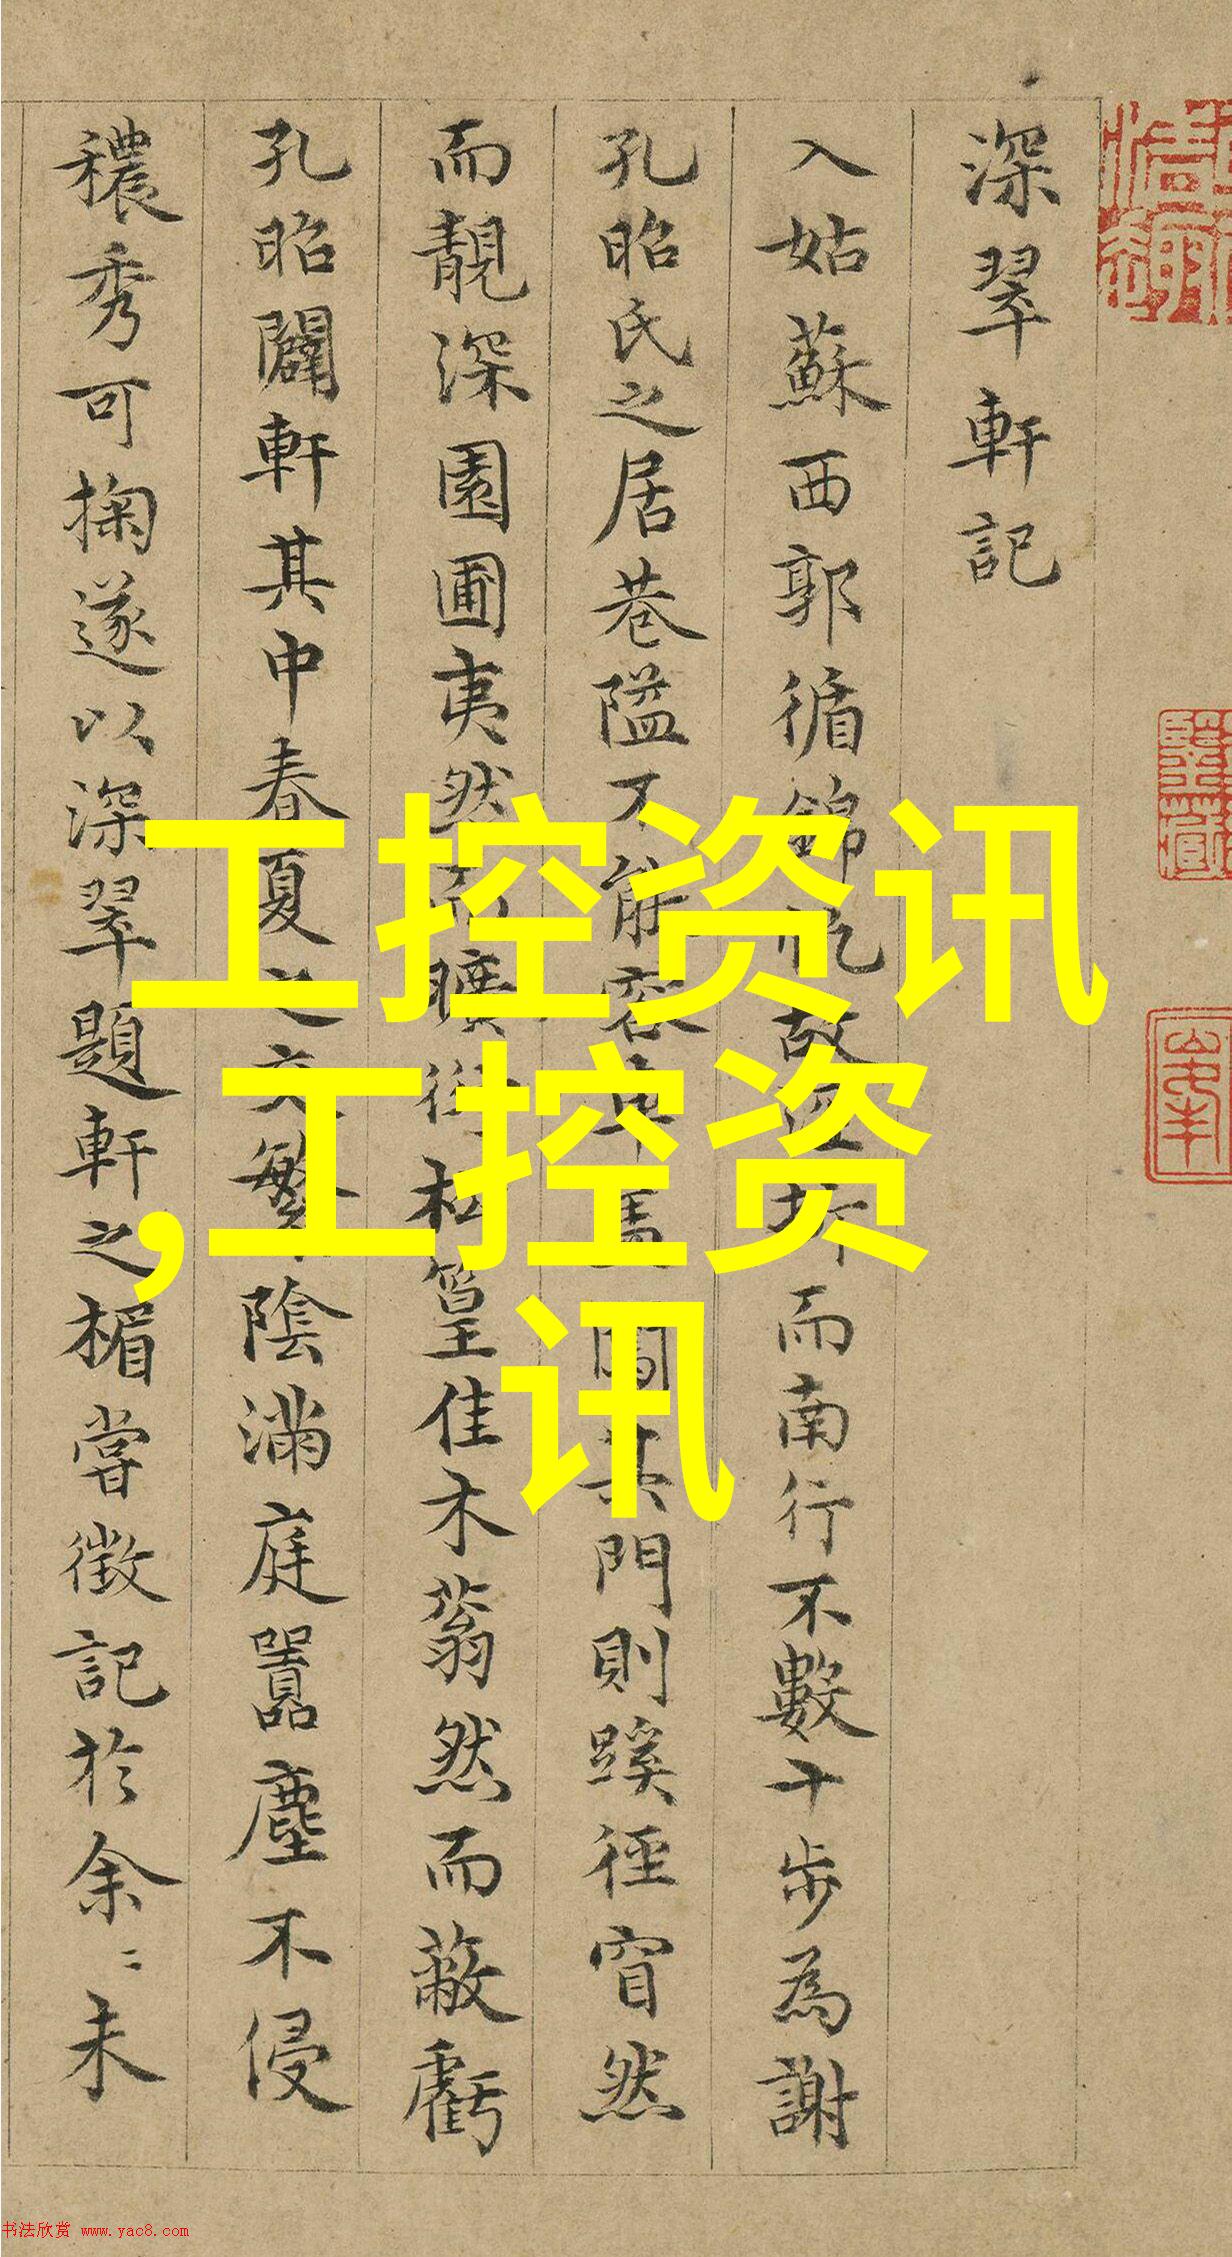 深翠軒記
入姑蘇西郭循錦帆故涇折而南行不數十步為謝
孔昭氏之居巷隘不能容車馬闖其門則蹊徑窅然
而靚深園圃夷然而曠衍松篁佳木蓊然而蔽虧
孔昭闢軒其中春夏之交繁陰滿庭囂塵不侵
穠秀可掬遂以深翠題軒之楣嘗徵記於余〻未
工控资讯
,工控资
讯
書法欣賞 www.yac8.com